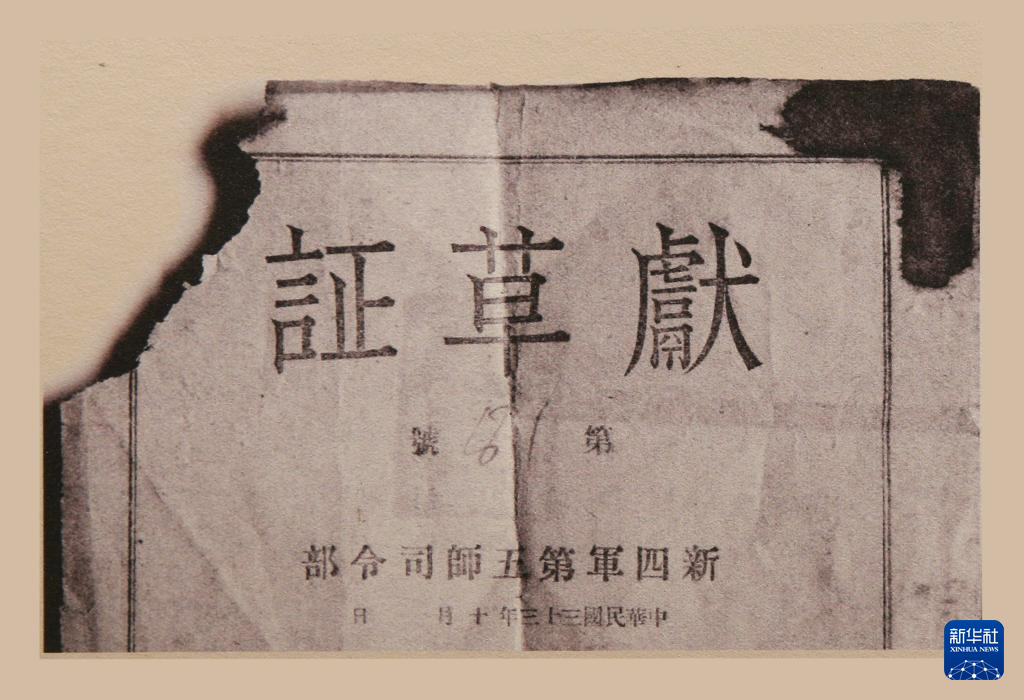 獻草証
第 號
新四軍第五師司令部
中華民國三十三年十月 日
新华社
XINHUA NEWS